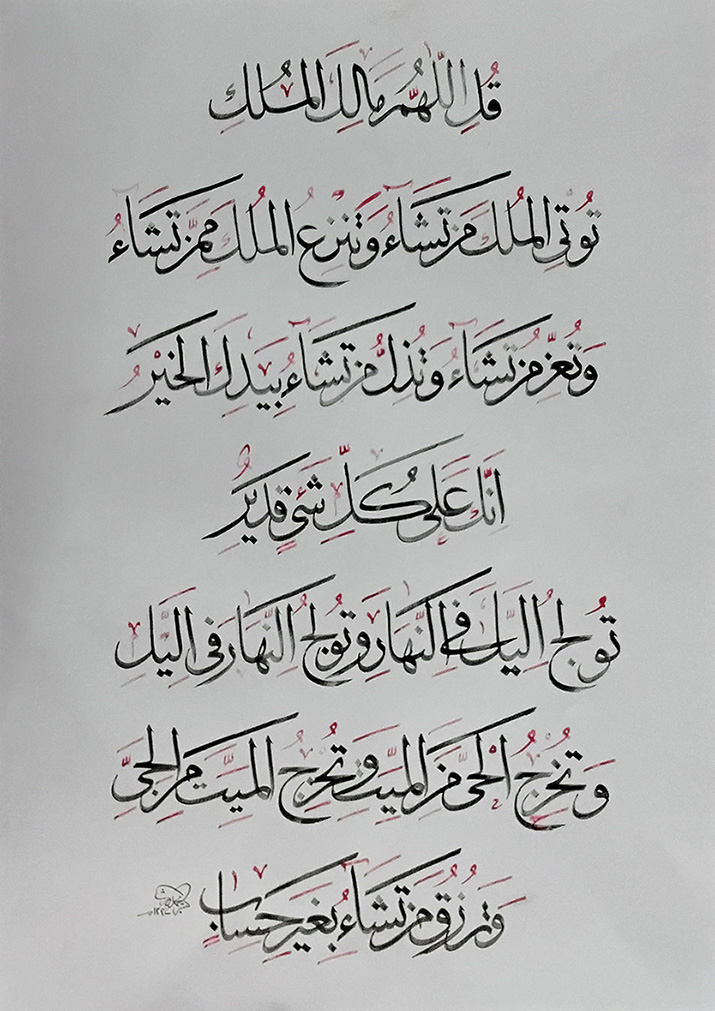 قُلِ اللّٰهُمَّ مَالِكَ الْمُلْكِ
تُؤْتِي الْمُلْكَ مَن تَشَاءُ وَتَنزِعُ الْمُلْكَ مِمَّن تَشَاءُ
وَتُعِزُّ مَن تَشَاءُ وَتُذِلُّ مَن تَشَاءُ بِيَدِكَ الْخَيْرُ
اِنَّكَ عَلَى كُلِّ شَيْءٍ قَدِيرٌ
تُولِجُ الَّيْلَ فِي النَّهَارِ وَتُولِجُ النَّهَارَ فِي الَّيْلِ
وَتُخْرِجُ الْحَيَّ مِنَ الْمَيِّتِ وَتُخْرِجُ الْمَيِّتَ مِنَ الْحَيِّ
وَتَرْزُقُ مَن تَشَاءُ بِغَيْرِ حِسَابٍ